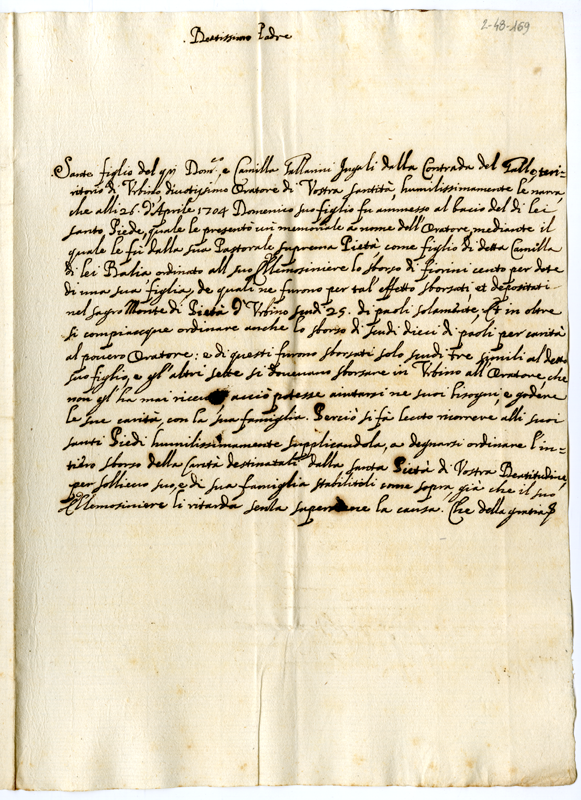 2-48-169
Beatissimo Padre
Santo figlio del qm Dom.co, e Camilla Iugali dalla Contrada del Gallo teri=
ritorio di Urbino diuotissimo Oratore di Vostra santità, humilissimamente le narra
che alli 26. d'Aprile 1704 Domenico suo figlio fu ammesso al bacio del di lei
santo Piede, quale le presentò un memoriale a nome dell'Oratore, mediante il
quale le fù dalla sua Pastorale suprema Pietà, come figlio di detta Camilla
di lei Balia ordinato all suo Ellemosiniere lo sborso di fiorini cento per dote
di una sua figlia, de quali ne furono per tal effetto sborsati, et depositati
nel sagro Monte di Pietà d'Urbino scudi 25. di paoli solamente, Et in oltre
si compiacque ordinare anche lo sborso di scudi dieci di paoli per carità
al pouero Oratore: e di questi furono sborsati solo scudi tre simili al detto
suo figlio, e gl'altri sette si doueuano sborsare in Urbino all'Oratore, che
non gl'ha mai acciò potesse aiutarsi ne suoi bisogni, e godere
le sue carità, con la sua famiglia. Perciò si fà lecito ricorrere alli suoi
santi Piedi humilissimamente supplicandola, a degnarsi ordinare l'in=
tiero sborso della Carità destinatali dalla sancta Pietà di Vostra Beatitudine,
per sollieuo suo, e di sua famiglia stabilitoli come sopra, già che il suo
Ellemosiniere li ritarda senza la causa. Che della gratia &